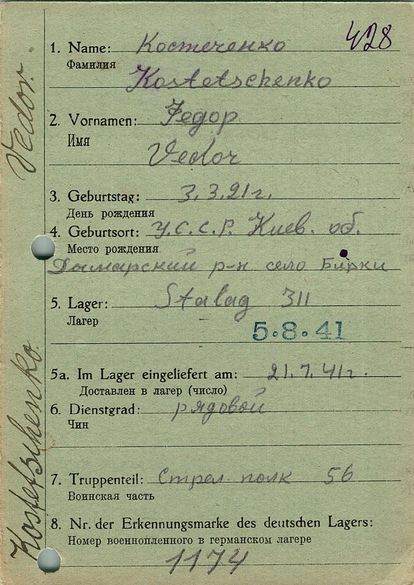 428
1. Name: Костеченко
Фамилия
Kostetschenko
2. Vornamen: Федор
Имя
Vedor
3. Geburtstag: 3.3.21 г.
День рождения
4. Geburtsort: У.С.С.Р. Киев. об.
Место рождения
Дымарский р-н село Бирки
5. Lager: Stalag 311
Лагер
5·8·41
5a. Im Lager eingeliefert am: 21.7.41 г.
Доставлен в лагер (число)
6. Dienstgrad: рядовой
Чин
7. Truppenteil: Стрел полк 56
Воинская часть
8. Nr. der Erkennungsmarke des deutschen Lagers:
Номер военнопленного в германском лагере
1174
Kostetschenko Vedor.